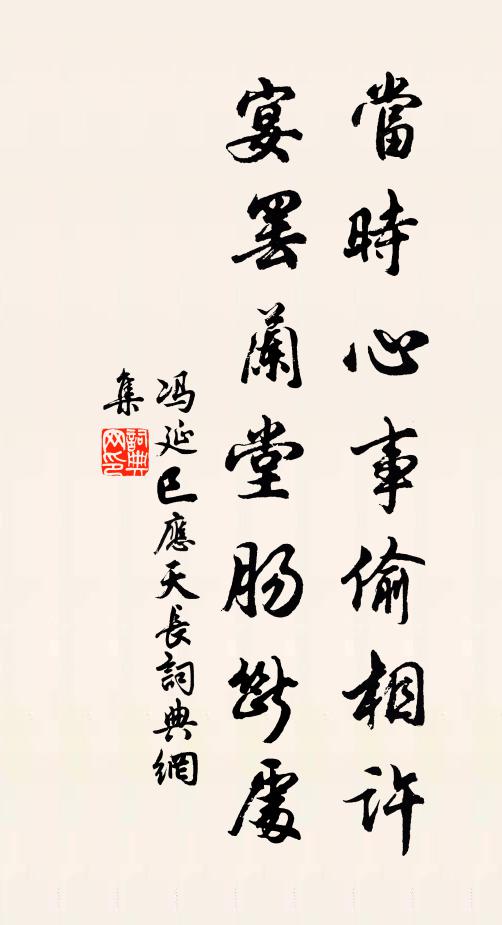 當時心事偷相許
宴罷蘭堂肠斷處
冯延巳應天長詞典網
集
詞典
网印